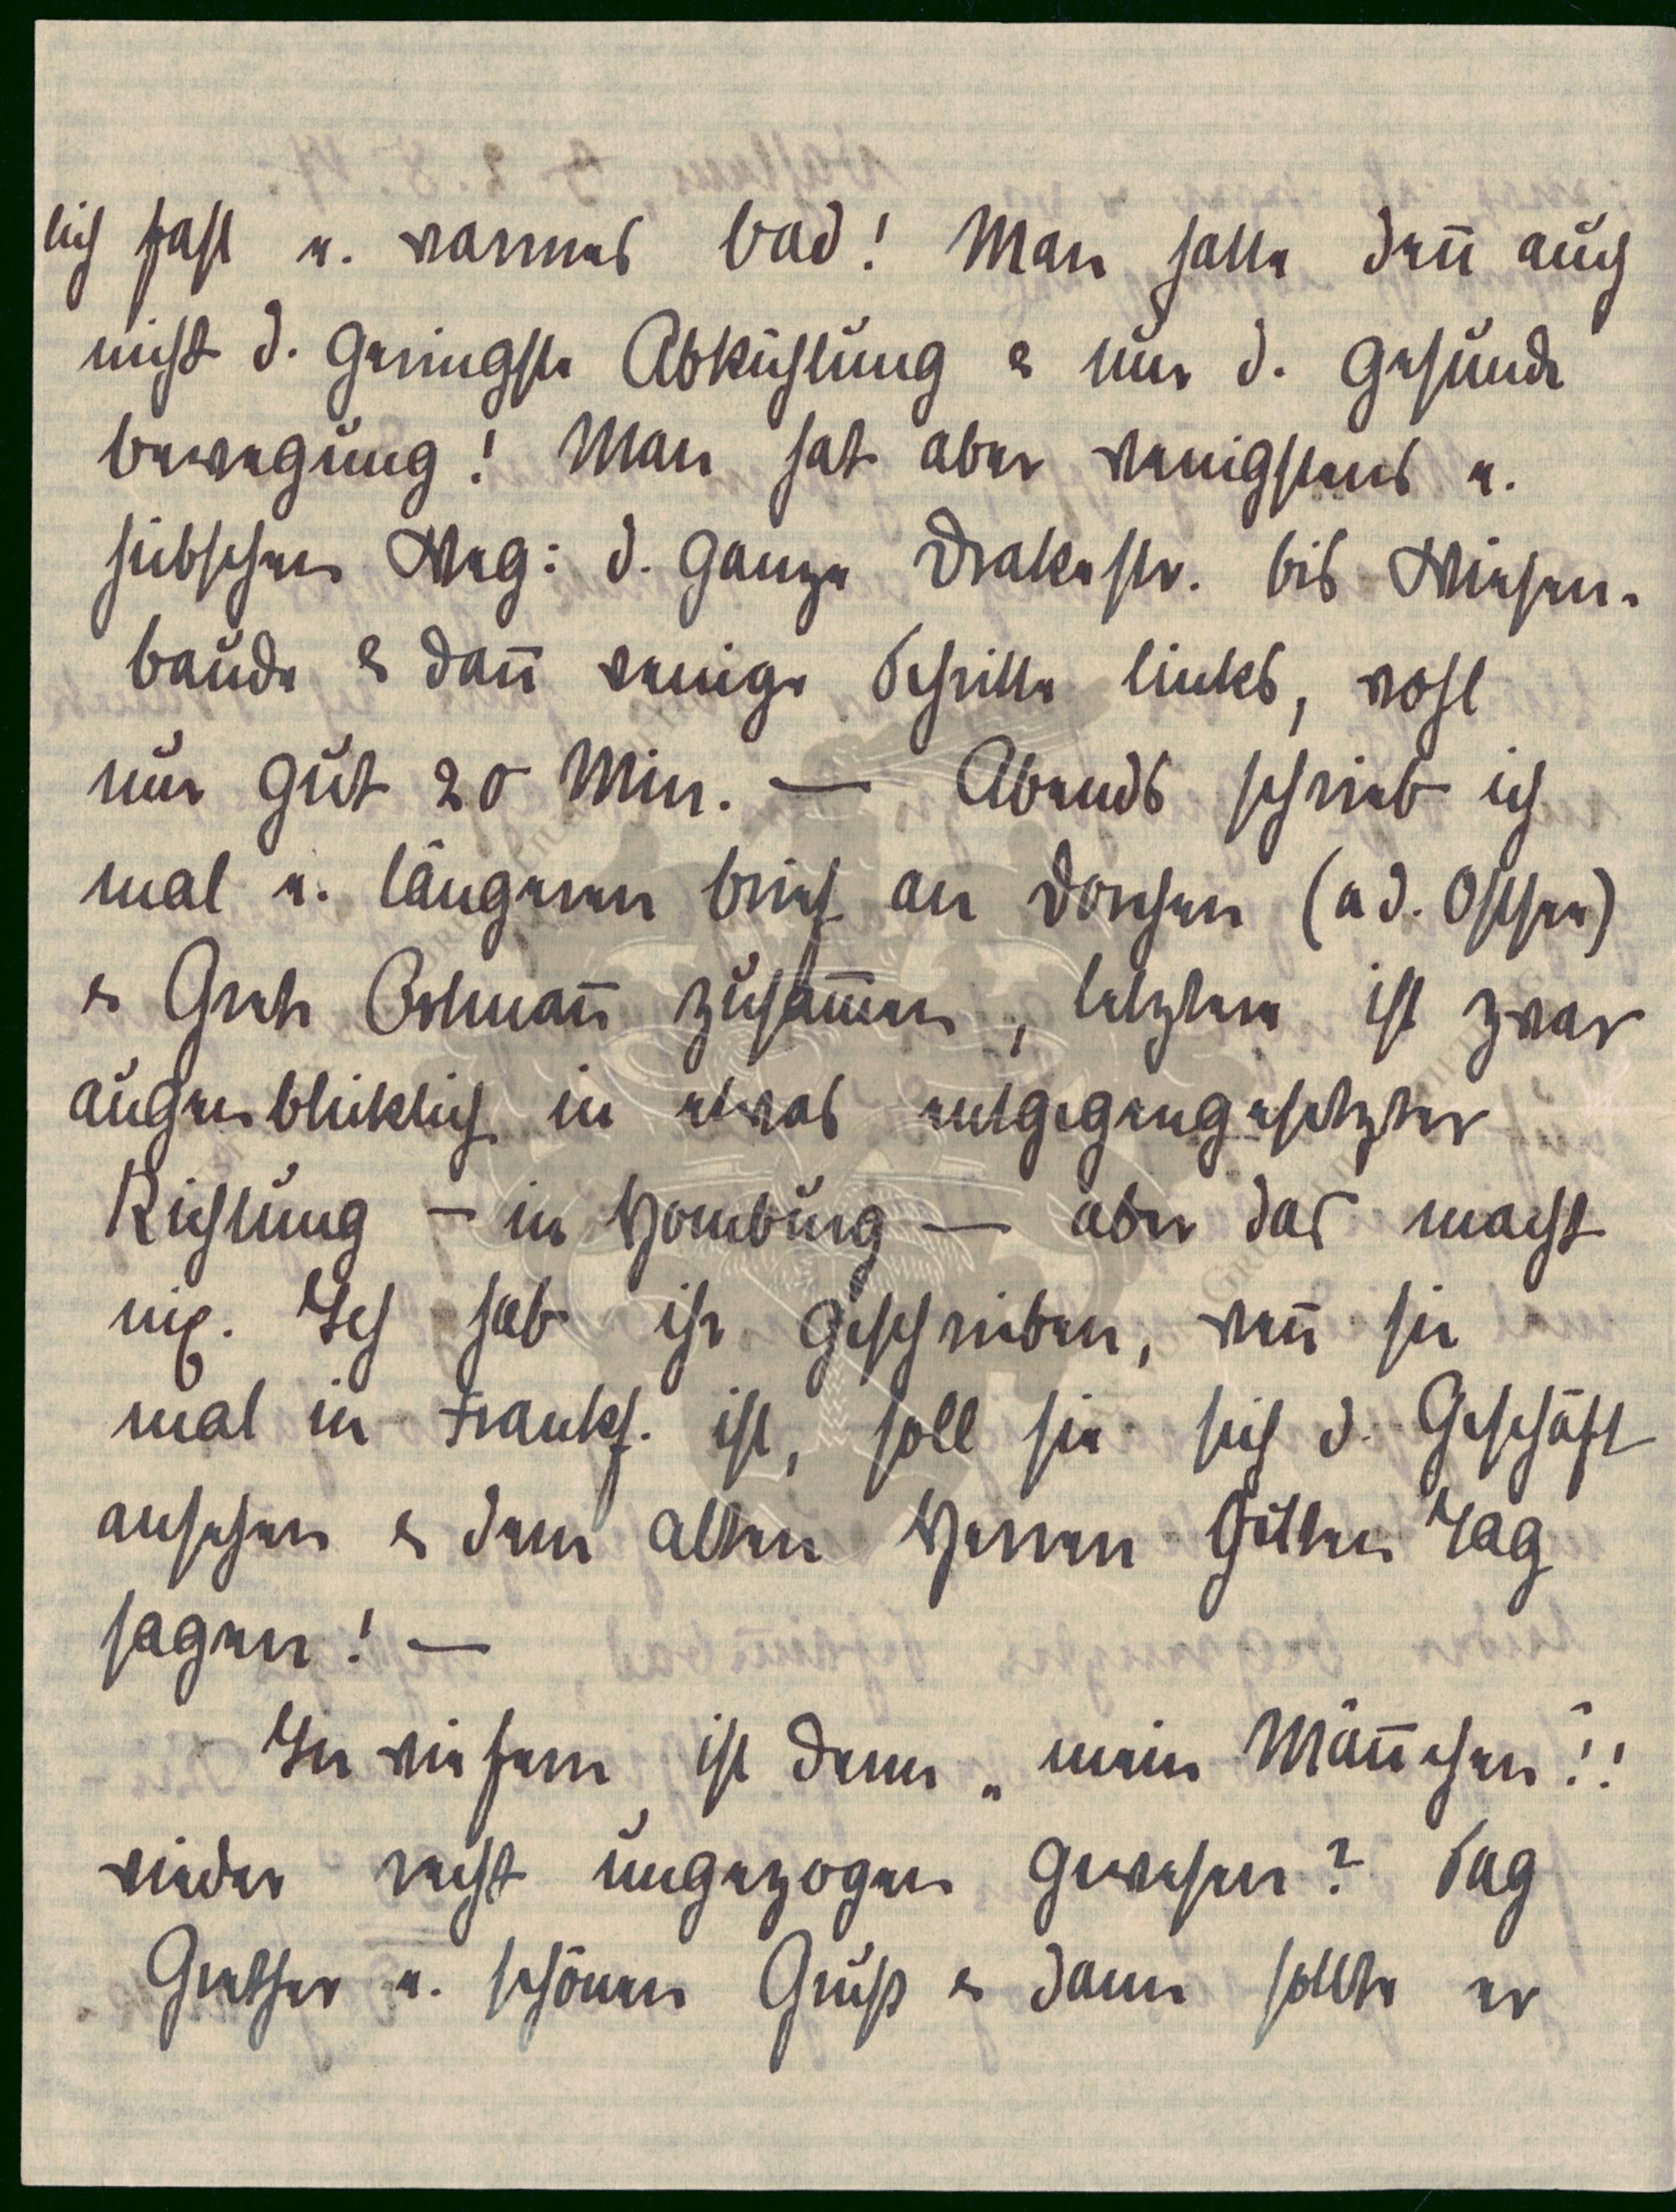 lich fast e. warmes Bad! Man hatte deñ auch
nicht d. geringste Abkühlung & nur d. gesunde
Bewegung! Man hat aber wenigstens e.
hübschen Weg: d. ganze Drakestr. bis Wiesen-
baude & dañ wenige Schritte links, wohl
nur gut 20 Min. — Abends schrieb ich
mal e. längeren Brief an Dorchen (a d. Ostsee)
& Grete Ostmañ zusam̄en, letztere ist zwar
augenblicklich in etwas entgegengesetzter
Richtung – in Homburg – aber das macht
nix. Ich hab ihr geschrieben, weñ sie
mal in Frankf. ist, soll sie sich d. Geschäft
ansehen & dem alten Herren Guten Tag
sagen! —
In wiefern ist denn „mein Mäñchen"!!
wieder recht ungezogen gewesen? Sag
Grether e. schönen Gruß & dann sollte er